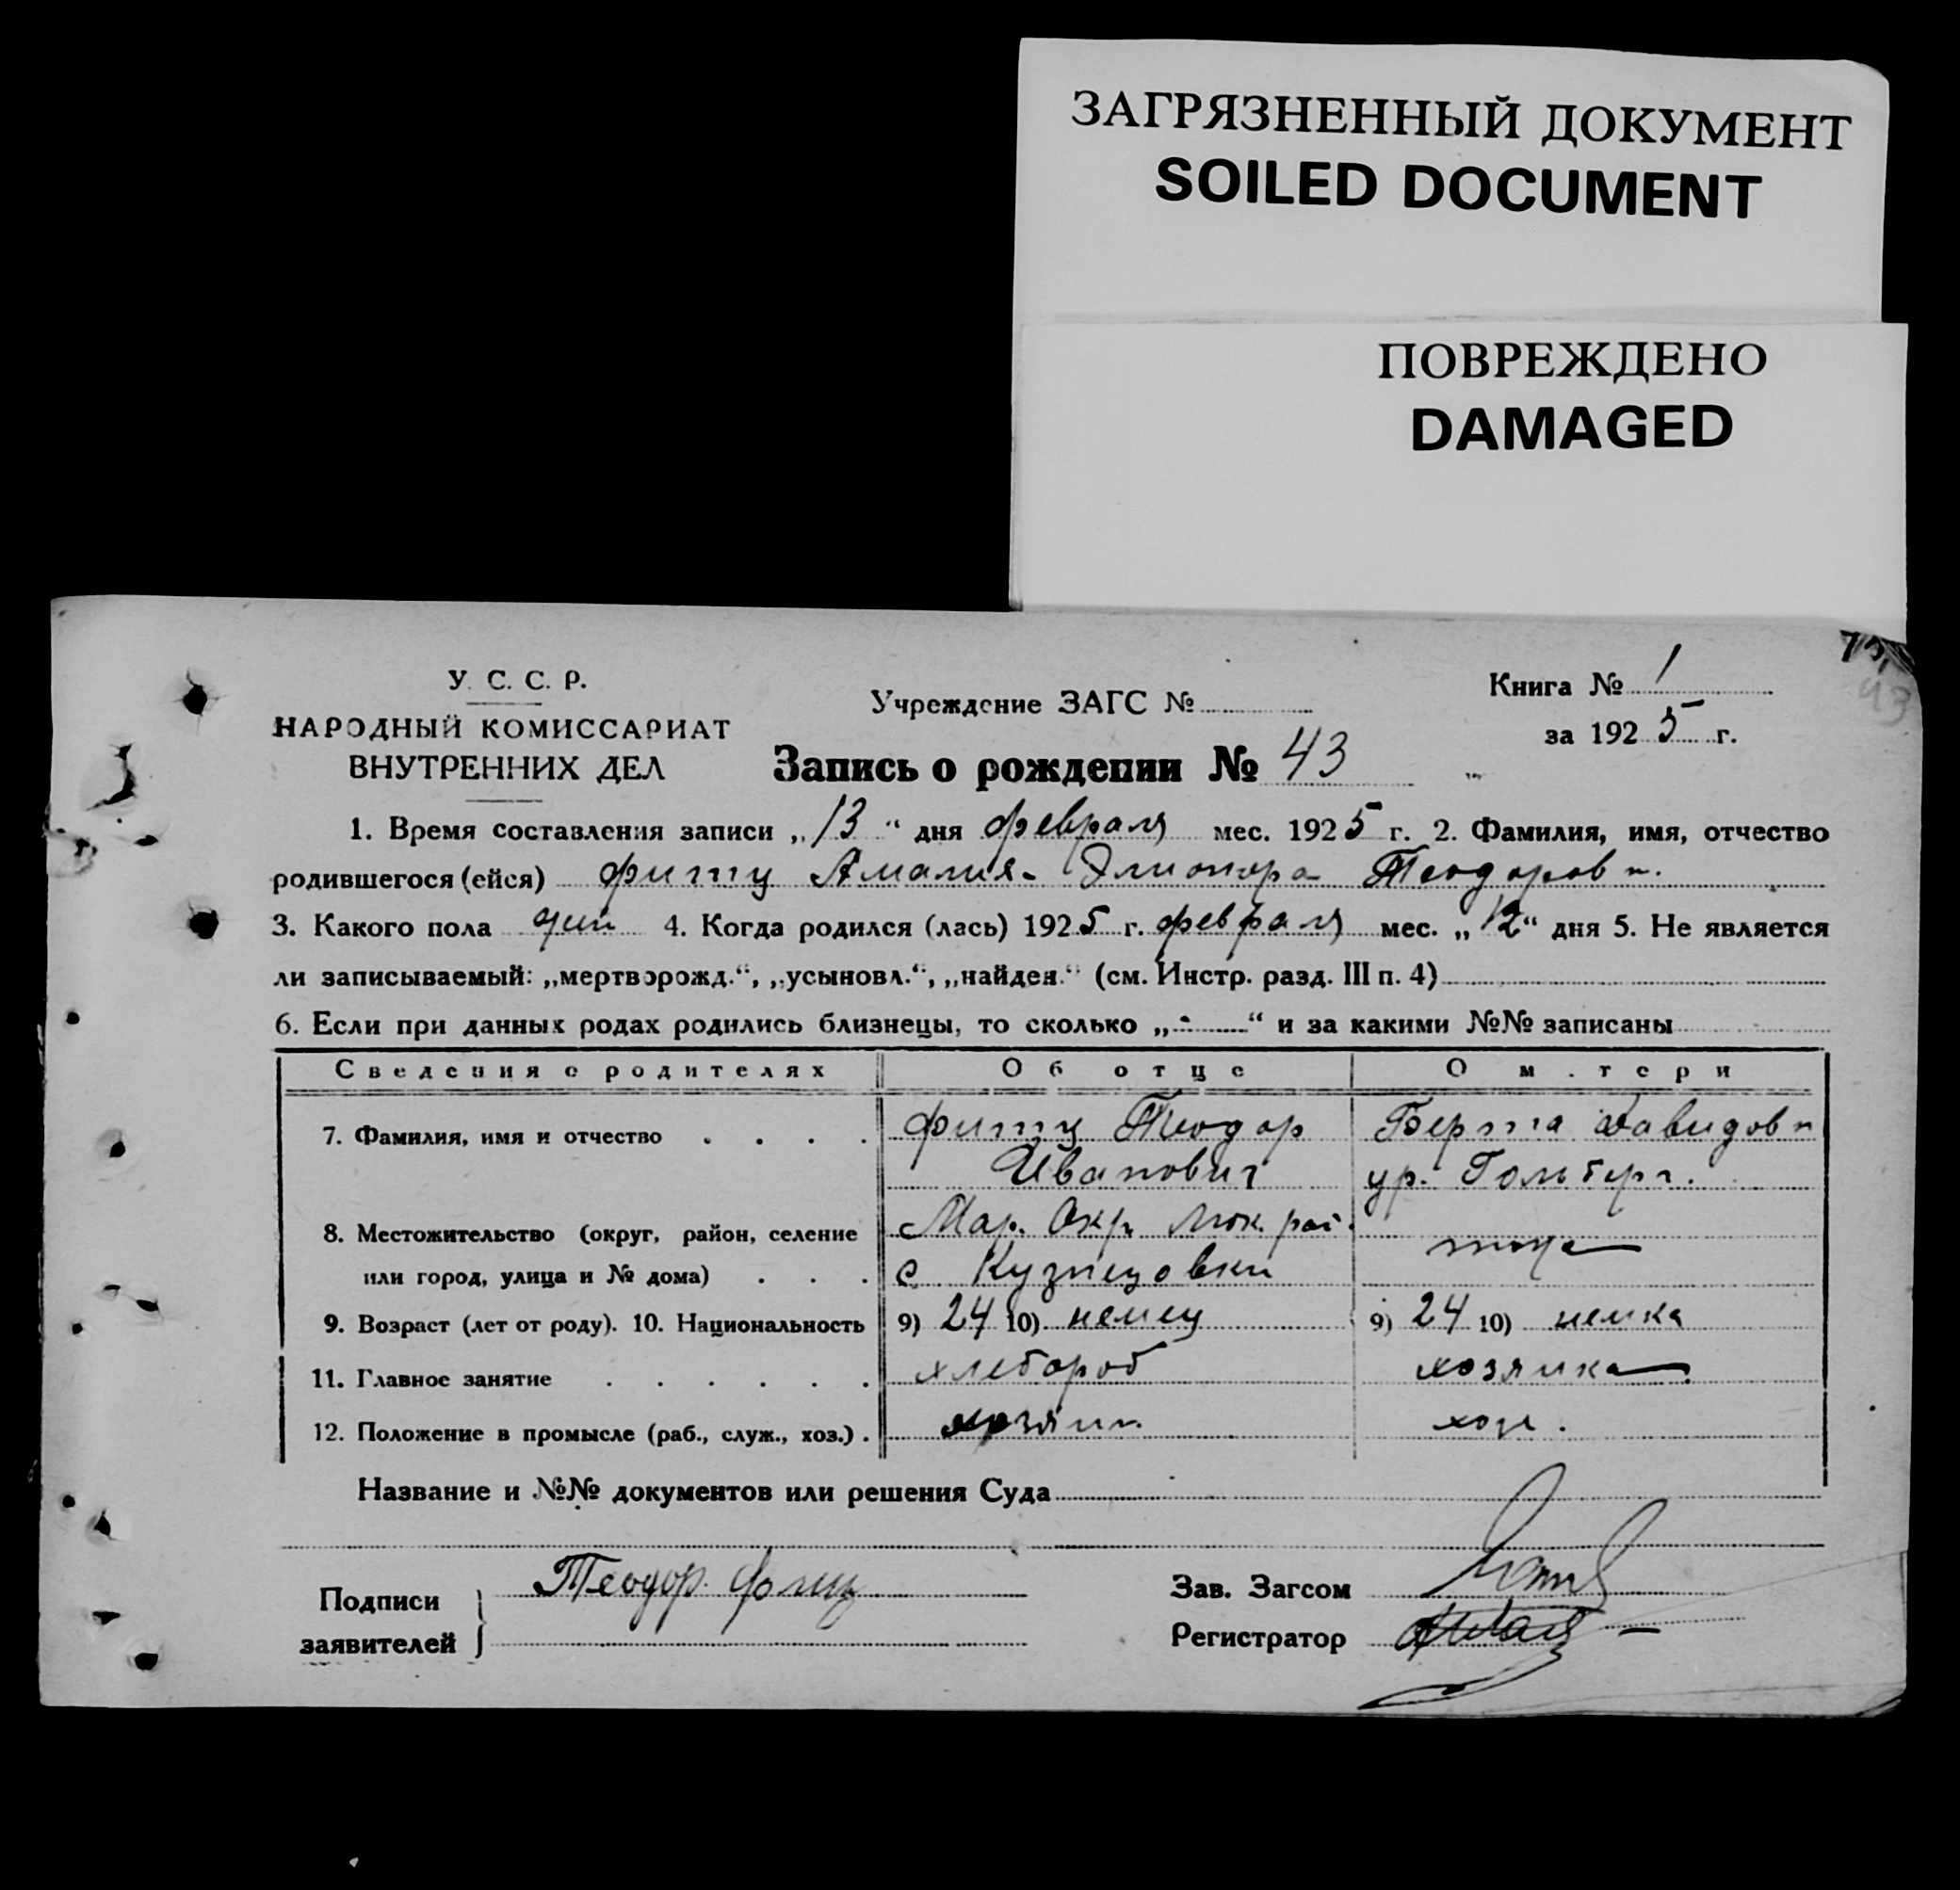 ЗАГРЯЗНЕННЫЙ ДОКУМЕНТ
SOILED DOCUMENT
ПОВРЕЖДЕНО
DAMAGED
У. С. С. Р.
НАРОДНЫЙ КОМИССАРИАТ
ВНУТРЕННИХ ДЕЛ
Учреждение ЗАГС №
Книга № 1
за 1925 г.
43
Запись о рождении № 43
1. Время составления записи „13“ дня февраля мес. 1925 г. 2. Фамилия, имя, отчество
родившегося (ейся) Фитц Амалия-Элионора Теодоровн.
3. Какого пола 4. Когда родился (лась) 1925 г. февраля мес. „12“ дня 5. Не является
ли записываемый: „мертворожд.“, „усыновл.“, „найден.“ (см. Инстр. разд. III п. 4)
6. Если при данных родах родились близнецы, то сколько „-“ и за какими №№ записаны
Сведения о родителях Об отце О м.тери
7. Фамилия, имя и отчество . . . . Фитц Теодор Берта Давидовн
Иванович ур. Гольберг.
8. Местожительство (округ, район, селение Мар. Окр. Люк. рай. тоже
или город, улица и № дома) . . . с Кузнецовки
9. Возраст (лет от роду). 10. Национальность 9) 24 10) немец 9) 24 10) немка
11. Главное занятие . . . . . . хлебороб хозяйка
12. Положение в промысле (раб., служ., хоз.) . хозяин хозя.
Название и №№ документов или решения Суда
Подписи Теодор Фитц Зав. Загсом
заявителей Регистратор